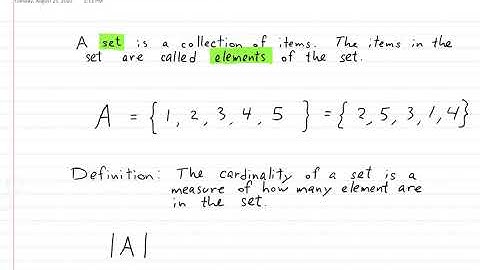 Tuesday, August 25, 2020 2:13 PM
A set is a collection of items. The items in the
set are called elements of the set.
A = { 1, 2, 3, 4, 5 } = { 2, 5, 3, 1, 4}
Definition: The cardinality of a set is a
measure of how many element are
in the set.
|A|